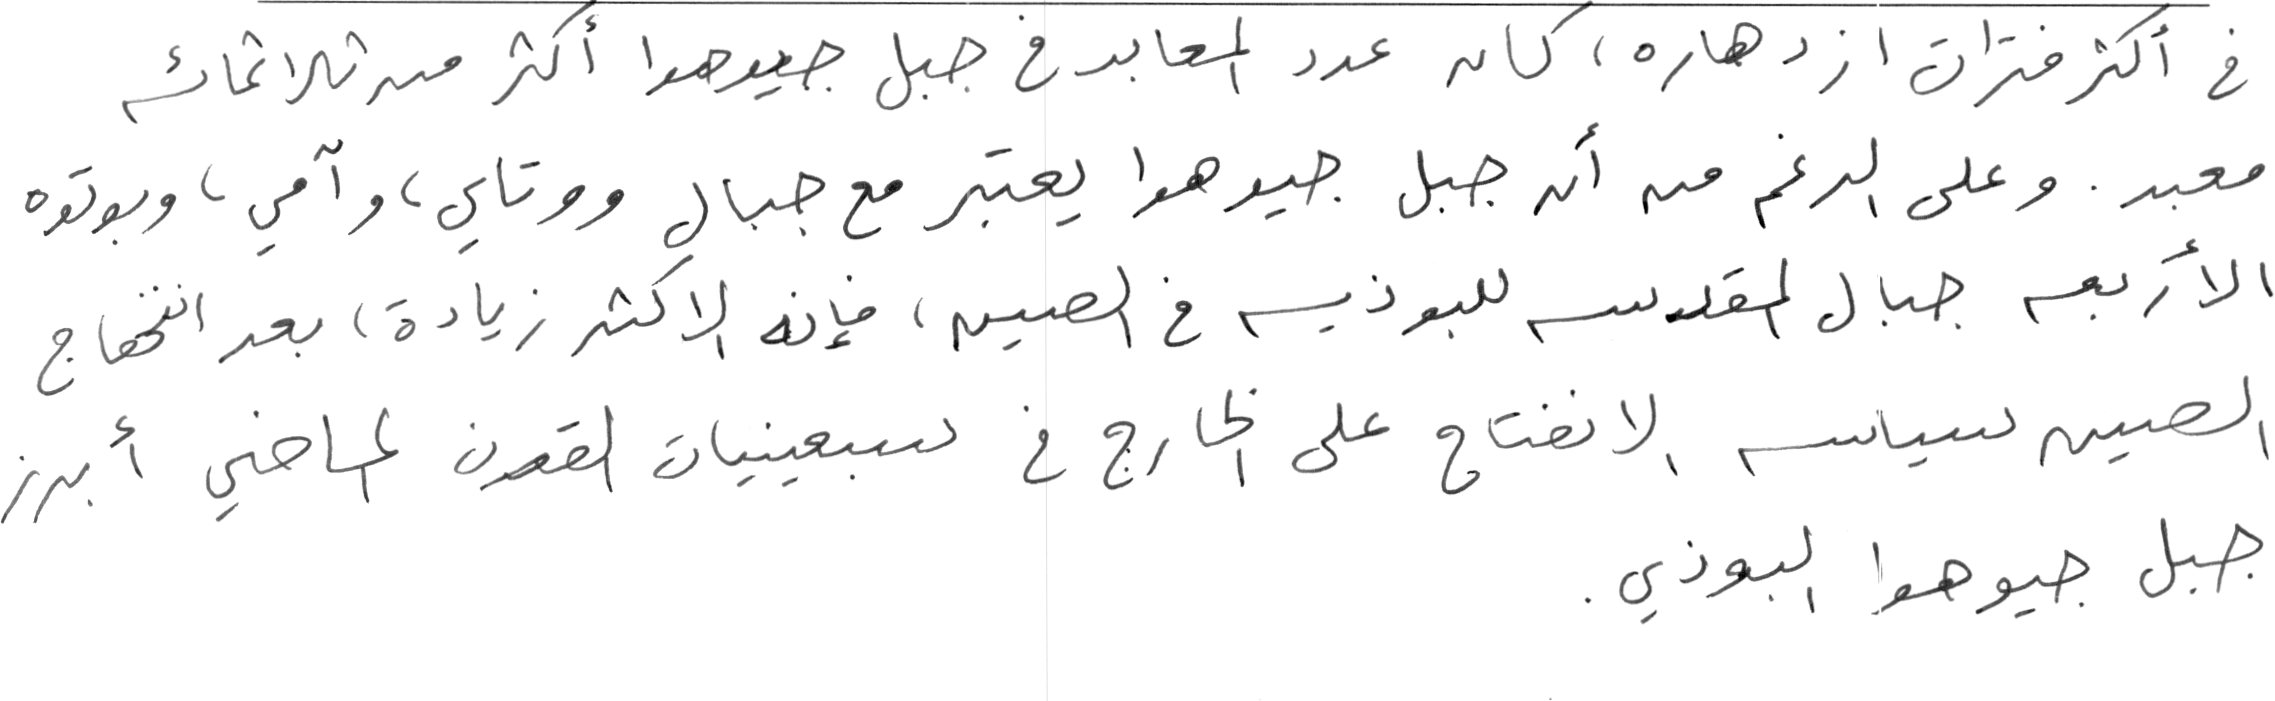 في أكثر فترات ازدهاره، كان عدد المعابد في جبل جيوهوا أكثر من ثلاثمائه
معبد. وعلى الرغم من أن جبل جيوهوا يعتبر مع جبال ووتاي، وآمي، وبوتوه
الأربعه جبال المقدسه للبوذيه في الصين، فإنه الاكثر زيادة، بعد انتهاج
الصين سياسه الانفتاح على الخارج في سبعينيات القرن الماضي أبرز
جبل جيوهوا البوذي.